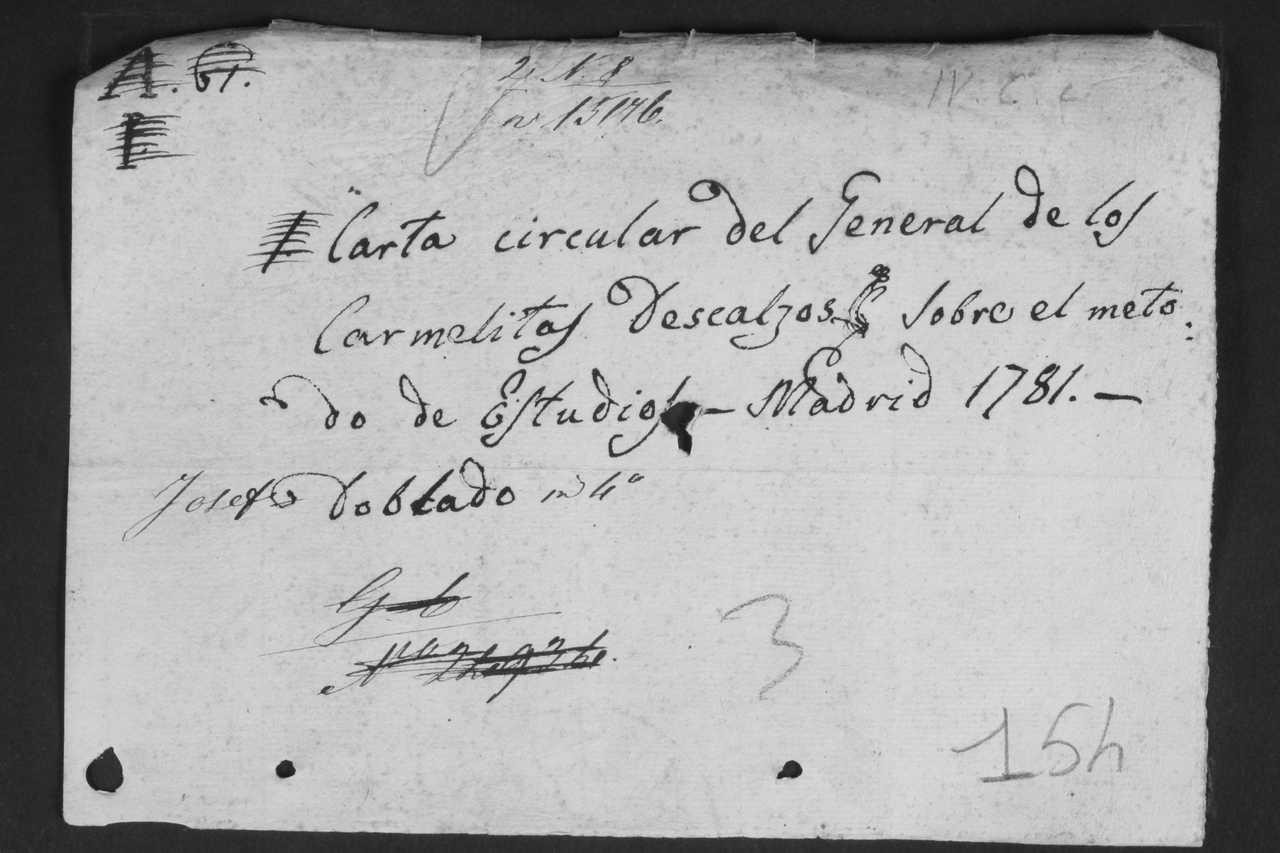 A. 61.
N. 8
IV. C. c
n 15176.
E
Carta circular del General de los
Carmelitas Descalzos sobre el meto
do de Estudios – Madrid 1781. –
Josef Doblado in 4º
G 6
3
154